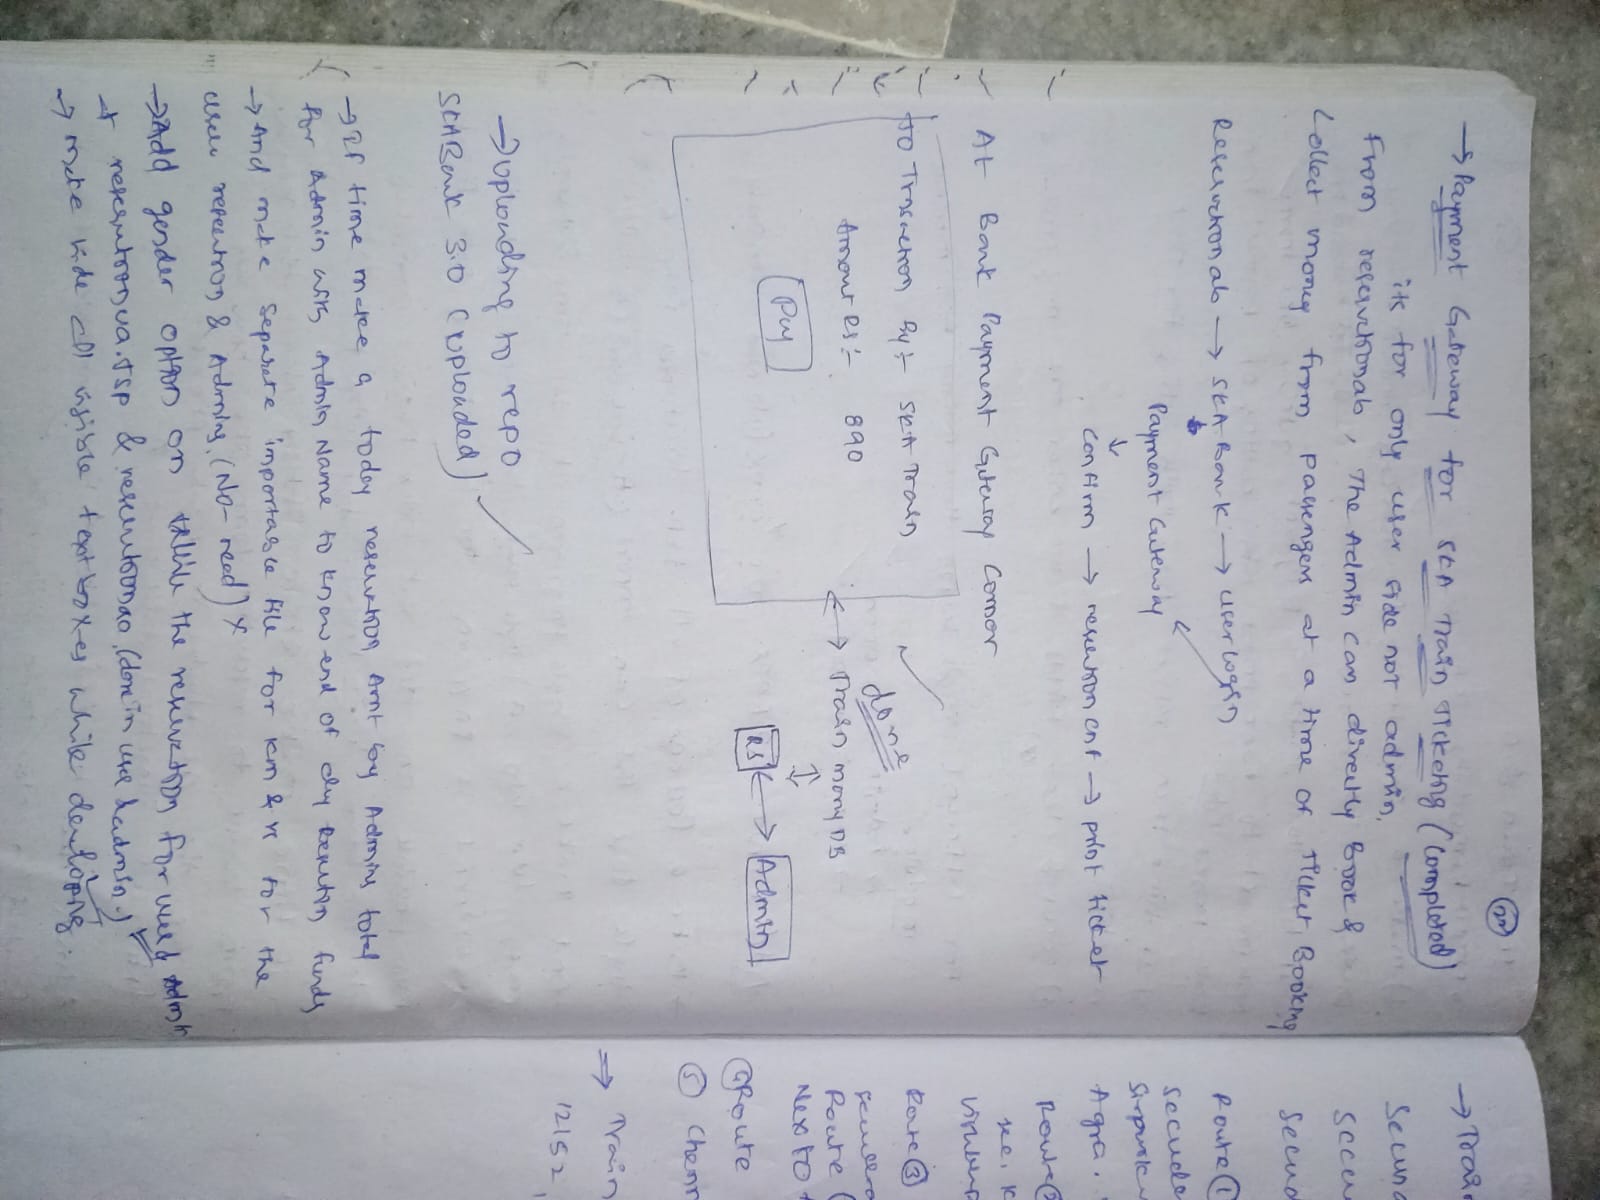 22
→ Payment Gateway for SKA Train Ticketing (Completed)
its for only user side not admin,
From reservctionab, The Admin can directly Book &
Collect money from passengers at a time of Ticket Booking
Reservctionab → SKA Bank → user login
↓
Payment Guteway
↓
confirm → reservtion cnf → print ticket
At Bank Payment Guteway Cornor
TO Trnsaction By:- SKA Train
Amount Rs:- 890
Pay
done
↔ Train mony DB
↕
RS ↔ Admin
→ uploading to repo
SKABank 3.0 (uploaded)
→ If time make a today reservtion Amt by Admins total
for Admin with Admin Name to know end of day funds
→ And make separate importable file for km & rs for the
user & Admins. (No-need) x
→ Add gender option on the reservation for user & Admin
& (done in user & admin.)
→ make hide all visible text boxes while developing.
→ Train
Secund
Secun
Secud
Route ①
Secude
Sirpurk
Agra.
Route ②
sec, K
Route ③
Route
Next to
④ Route
⑤ Chenn
⇒ Train
12152,